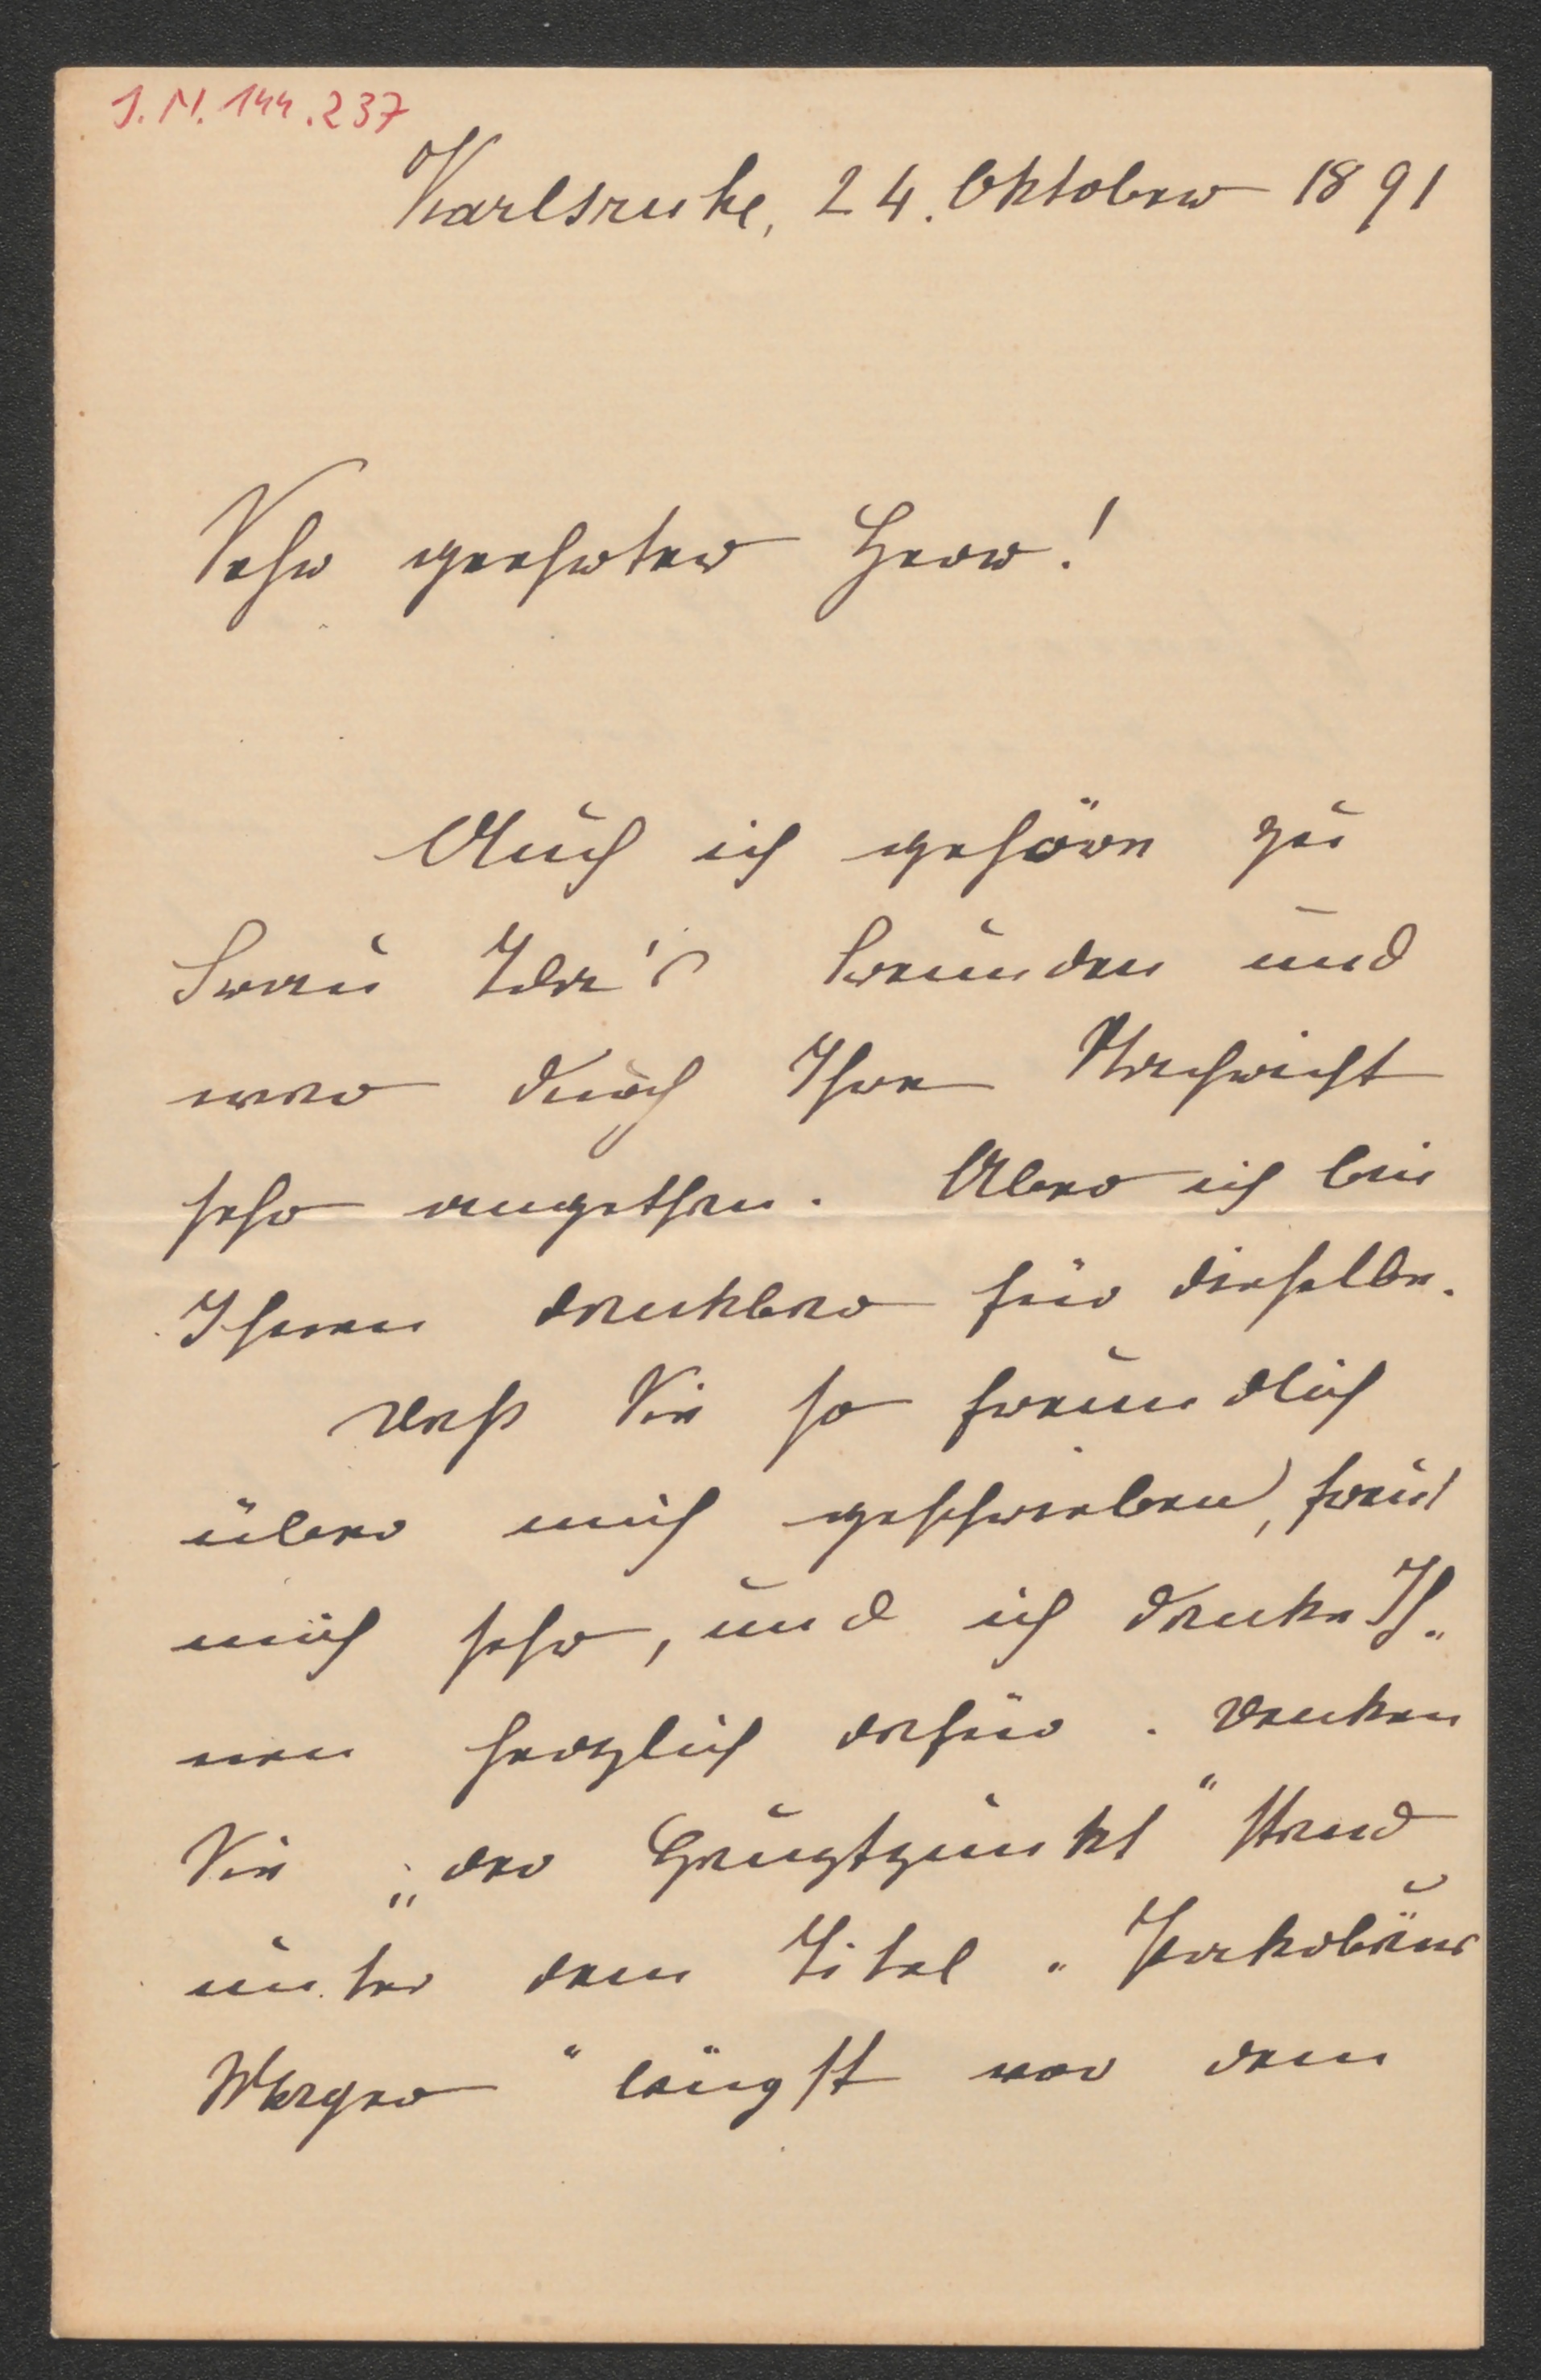 J.N. 144.237
Karlsruhe, 24. Oktober 1891
Sehr geehrter Herr!
Auch ich gehöre zu
Frau Ida's Freunden und
war durch Ihre Nachricht
sehr angethan. Aber ich bin
Ihnen dankbar für dieselbe.
Daß Sie so freundlich
über mich geschrieben, freut
mich sehr, und ich danke Ih„
nen herzlich dafür. Denken
Sie „der Hauptpunkt" stand
unter dem Titel „Jakobäus
Wager" längst vor dem